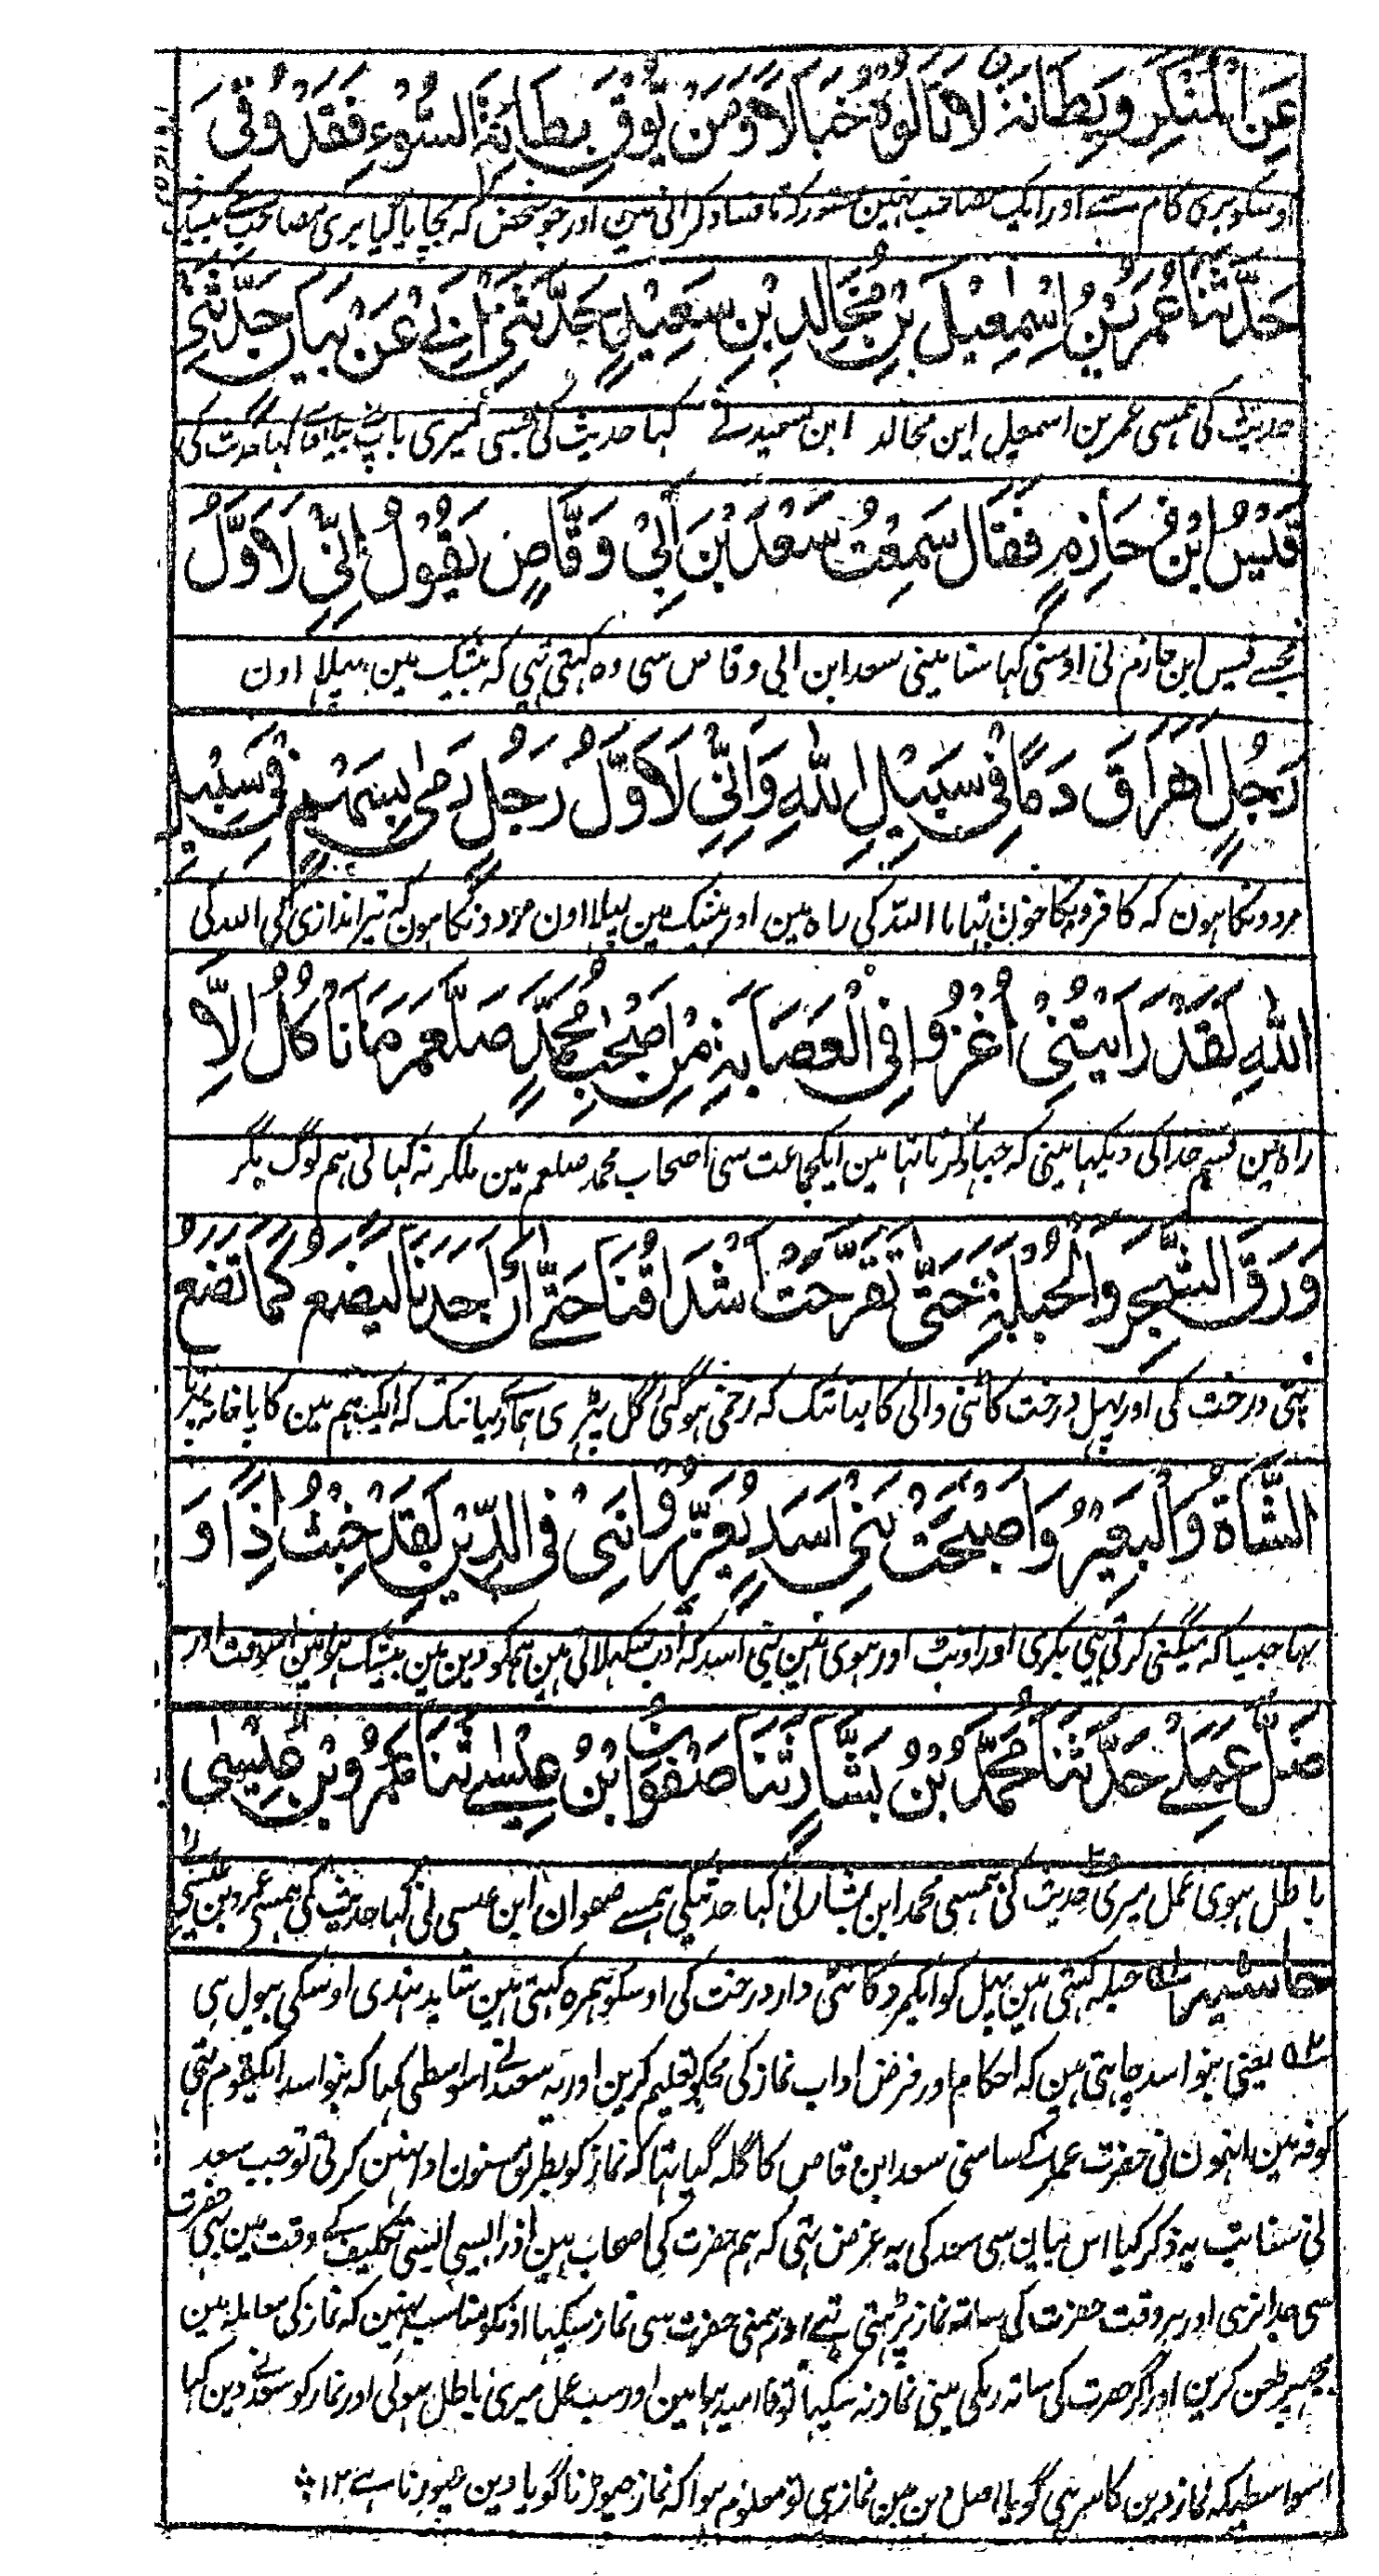 عَنِ الْمُنْكَرِ وَبِطَانَةٌ لَا تَأْلُوهُ خَبَالًا وَمَنْ يُوقَ بِطَانَةَ السُّوْءِ فَقَدْ وُقِيَ
اوسکو بری کام سے اور ایک مصاحب نہین قصور کرتا فساد کرانی مین اور جو شخص کہ بچایا گیا بری مصاحب سے
حَدَّثَنَا عُمَرُ بْنُ اِسْمٰعِيْلَ بْنِ مُجَالِدِ بْنِ سَعِيْدٍ حَدَّثَنِيْ اَبِيْ عَنْ بَيَانٍ حَدَّثَنِيْ
حدیث کی ہمسی عمر بن اسمعیل ابن مجالد ابن سعید نے کہا حدیث کی مجسی میری باپ نے بیان کہا حدیث کی
قَيْسُ ابْنُ حَازِمٍ فَقَالَ سَمِعْتُ سَعْدَ بْنَ أَبِيْ وَقَّاصٍ يَقُوْلُ اِنِّيْ لَاَوَّلُ
مجسے قیس ابن حازم نی اوسنی کہا سنا مینی سعد ابن ابی وقاص سی وہ کہتی تہی کہ بیشک مین پہلا اون
رَجُلٍ اَهْرَاقَ دَمًا فِيْ سَبِيْلِ اللهِ وَاِنِّيْ لَاَوَّلُ رَجُلٍ رَمٰى بِسَهْمٍ فِيْ سَبِيْلِ
مردونکا ہون کہ کافرونکا خون بہایا اللہ کی راہ مین اور بیشک مین پہلا اون مردونکا ہون کہ تیر اندازی کی اللہ کی
اللهِ لَقَدْ رَاَيْتُنِيْ اَغْزُوا فِي الْعَصَابَةِ مِنْ اَصْحٰبِ مُحَمَّدٍ صَلَّعم مَا نَاْكُلُ اِلَّا
راہ مین قسم خدا کی دیکہا مینی کہ جہاد کرتا تہا مین ایکجماعت سی اصحاب محمد صلعم مین ملکر نہ کہاتی ہم لوگ مگر
وَرَقَ الشَّجَرِ وَالْحُبْلَةِ حَتّٰى تَقَرَّحَتْ اَشْدَاقُنَا حَتّٰى اِنَّ اَحَدَنَا لَيَضَعُ كَمَا تَضَعُ
پتی درخت کی اور پہل درخت کانٹی والی کا یہانتک کہ زخمی ہوگئی گل پٹری ہماری یہانتک کہ ایک ہم مین کا پاخانہ
الشَّاةُ وَالْبَعِيْرُ وَاَصْبَحَتْ بَنِيْ اَسَدٍ يُعَزِّرُوْنَنِيْ فِي الدِّيْنِ لَقَدْ خِبْتُ اِذًا وَ
تہا جیسا کہ مینگنی کرتی ہی بکری اور اونٹ اور ہوی ہین بنی اسد کہ ادب سکہلاتی ہین ہمکو دین مین بیشک ہوا مین اسوقت اور
ضَلَّ عَمَلِيْ حَدَّثَنَا مُحَمَّدُ بْنُ بَشَّارٍ ثَنَا صَفْوَانُ بْنُ عِيْسٰى ثَنَا عَمْرُو بْنُ عِيْسٰى
باطل ہوی عمل میری حدیث کی ہمسی محمد ابن بشار نی کہا حدیث کی ہمسے صفوان ابن عیسی نی کہا حدیث کی ہمسی عمرو بن عیسی نے
حاشیہ ۵۱ حبلہ کہتی ہین پہل کو ایکمرد کانٹی دار درخت کی اوسکو سمرہ کہتی ہین شاید ہندی اوسکی ببول ہی
۵۲ یعنی بنو اسد چاہتی ہین کہ احکام اور فرض اداب نماز کی مجکو تعلیم کرین اور یہ سعد نے اسواسطی کہا کہ بنو اسد ایکقوم تہی
کوفہ مین انہون نی حضرت عمر کے سامنی سعد ابن وقاص کا گلہ کیا تہا کہ نماز کو بطریق مسنون ادا نہین کرتی تو جب سعد
نی سنا تب یہ ذکر کیا اس بیان سی سعد کی یہ غرض تہی کہ ہم حضرت کی اصحاب ہین اور ایسی ایسی تکلیف کے وقت مین بہی حضرت
سی جدا نہ ہی اور ہر وقت حضرت کی ساتہ نماز پڑہتی تہے اور ہمنی حضرت سی نماز سیکہا اونکو مناسب نہین کہ نماز کی معاملہ مین
مجہپر طعن کرین اور اگر حضرت کی ساتہ رہکی مینی نماز نہ سیکہا تو نا امید ہوا مین اور سب عمل میری باطل ہوئی اور نماز کو سعد نے دین کہا
اسواسطیکہ نماز دین کا سر ہی گویا اصل دین مین نماز ہی تو معلوم ہوا کہ نماز چہوڑنا گویا دین چہوڑنا ہے ۱۲